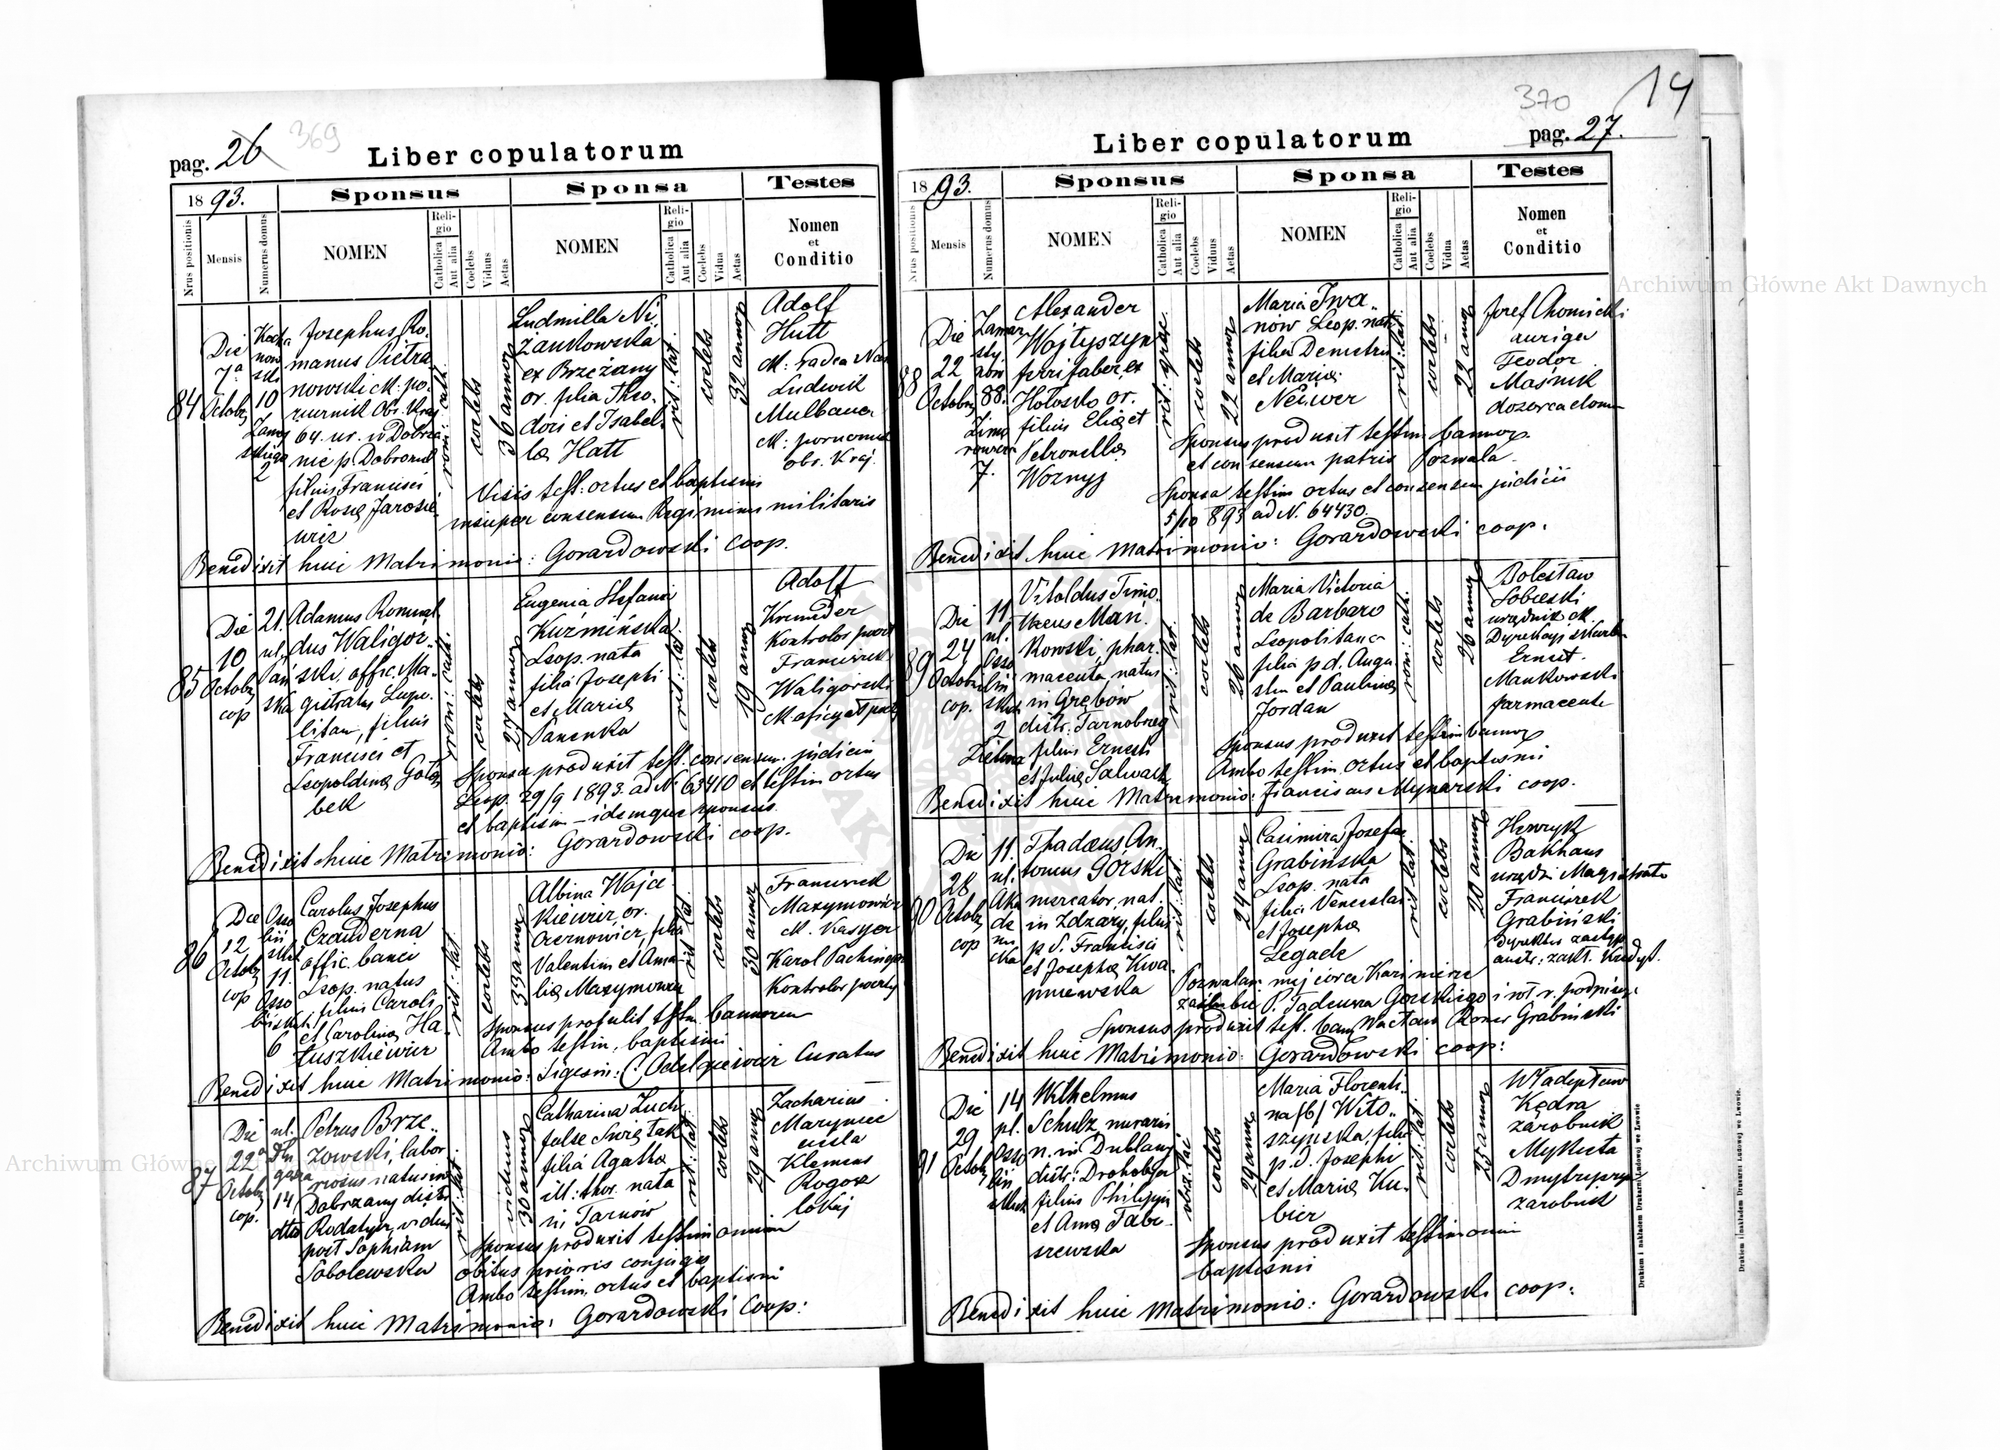 369
pag. 26
Liber copulatorum
1893.
Sponsus
Sponsa
Testes
Nrus positionis
Mensis
Numerus domus
NOMEN
Religio
Catholica
Aut alia
Coelebs
Viduus
Aetas
NOMEN
Religio
Catholica
Aut alia
Coelebs
Vidua
Aetas
Nomen
et
Conditio
84
Die
7a
Octobr
10
2
Josephus Ro.
manus Pietra
nowski
64. ur. w
nie p. Dobromil
filius Francisci
et Rosę Jarosie
wicz
rom: cath.
coelebs
36 annor
Ludmilla Ni
żankowska
ex Brzeżany
or. filia Theo
dori et Isabel
lę Hatt
rit: lat
coelebs
32 annor
Adolf
Hutt
Ludwik
Mulbauer
obr. Kraj.
Visis test: ortus et baptismi
insuper consensum Regiminis militaris
Benedixit huic Matrimonio: Gorardowski coop.
85
Die
10
Octobr
cop
21.
Adamus Romual
dus Waligór..
ski, offic. Ma.
gistratus Leopo.
litan, filius
Francisci et
Leopoldinę Gołę
bek
rom: cath:
coelebs
27 annor
Eugenia Stefania
Kuźmińska
Leop. nata
filia Josephi
et Marię
Panenka
rit: lat
coelebs
19 annor
Adolf
Kremder
Kontrolor poczt
Franciszek
Waligórski
M. oficyał poczt
Sponsa produxit test. consensum judicii
Leop. 29/9 1893 ad N. 63410 et testim ortus
et baptism — idemque sponsus.
Benedixit huic Matrimonio: Gorardowski coop.
86
Die
12
Octobr
cop
Osso
liń
skich
11.
Osso
lińskich
6
Carolus Josephus
Czauderna
offic. banci
Leop. natus
filius Caroli
et Carolinę Ha
łuszkiewicz
rit: lat.
coelebs
33 annor
Albina Wojcie
kiewicz or.
Czernowicz, filia
Valentini et Ama
lię Maxymowicz
rit lat
coelebs
30 annor
Franciszek
Maxymowicz
M. Kasyer
Karol
Kontrolor poczty
Sponsus protulit testm bannorum
Ambo testim. baptismi
Benedixit huic Matrimonio: Sigism: Odelgiewicz Curatus
87
Die
22a
Octobr
cop.
ul.
14
Petrus Brze..
zowski, labor
riosus natus in
Dobrzany distr
Rodatycz, viduus
post Sophiam
Sobolewska
rit: lat
viduus
30 annor
Catharina Luch
false Świętak
filia Agathę
ill: thor. nata
in Tarnów
rit: lat
coelebs
29 annor
Zacharius
Marynec
cieśla
Klemens
Rogoza
lokaj
Sponsus produxit testimonium
obitus prioris conjugis
Ambo testim, ortus et baptismi
Benedixit huic Matrimonio: Gorardowski Coop:
14
370
pag. 27.
Liber copulatorum
1893.
Sponsus
Sponsa
Testes
Nrus positionis
Mensis
Numerus domus
NOMEN
Religio
Catholica
Aut alia
Coelebs
Viduus
Aetas
NOMEN
Religio
Catholica
Aut alia
Coelebs
Vidua
Aetas
Nomen
et
Conditio
88
Die
22
Octobr
Zamar
sty.
now
88.
7.
Alexander
Wojtyszyn
ferrifaber, ex
Hołosko or.
filius Elię et
Petronellę
Woznyj
rit: grec.
coelebs
22 annor
Maria Iwa..
nów Leop. nata
filia Demetrii
et Marię
Neiwer
rit: lat.
coelebs
22 annor
Josef Chomicki
auriga
Teodor
Maśnik
dozorca domu
Sponsus produxit testim bannor.
et consensum patris Pozwala.
Sponsa testim ortus et consensum judicii
5/10 893 ad N. 64430.
Benedixit huic Matrimonio: Gorardowski coop.
89
Die
24
Octobr
cop.
11
ul.
Osso
liń
skich
2
Vitoldus Timo.
theus Mań.
kowski, phar.
maceuta, natus
in Grębów
distr. Tarnobrzeg
filius Ernesti
et Julię Salwach
rit: lat.
coelebs
26 annor
Maria Victoria
de Barbaro
Leopolitana
filia p. d. Augu
stin et Paulinę
Jordan
rom: cath.
coelebs
26 annor
Bolesław
Sobieski
urzędnik ck.
Dyrekcyi skarbu
Ernest.
Mańkowski
farmaceuta
Sponsus produxit testim bannor
Ambo testim. ortus et baptismi
Benedixit huic Matrimonio: Franciscus Mynarski coop.
90
Die
28
Octobr
cop
11.
ul.
Aka
de
mi
cka
Thadeus An.
tonius Górski
mercator, nat.
in Zdzary, filius
p. d. Francisci
et Josephę Kwa.
pniewska
rit: lat.
coelebs
24 annor
Casimira Josefa
Grabińska
Leop. nata
filia Venceslai
et Josephę
Legade
rit lat.
coelebs
20 annor
Henryk
Bakhaus
urzędn: Magistratu
Franciszek
Grabiński
Dyrektor zastęp.
austr: zakł. Kredyt.
Pozwalam mej córce Kazimierze
za P. Tadeusza Gorskiego i wł. r. podpisuję
Sponsus produxit test. bann Wacław Roner Grabiński
Benedixit huic Matrimonio: Gorardowski coop:
91
Die
29
Octobr
14
pl.
Osso
liń
skich
Wilhelmus
Schulz, murarius
n. in Dublany
distr: Drohobycz
filius Philippi
et Annę Fabi.
szewska
rit: lat
coelebs
29 annor
Maria Florenti..
na (b) Wito..
szyńska, filia
p. d. Josephi
et Marię Ku.
bier
rit: lat.
coelebs
25 annor
Władysław
Kędra
zarobnik
Mykieta
Dmytryszyn
zarobnik
Sponsus produxit testimonium
baptismi
Benedixit huic Matrimonio: Gorardowski coop.
Drukiem i nakładem Drukarni Ludowej we Lwowie
Drukiem i nakładem Drukarni Ludowej we Lwowie.
Archiwum Główne Akt Dawnych
Archiwum Główne Akt Dawnych